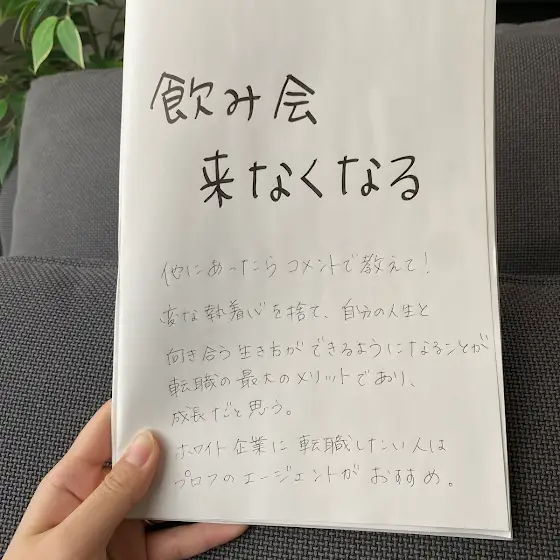 飲み会
来なくなる
他にあったらコメントで教えて!
変な執着心を捨て、自分の人生と
向き合う生き方ができるようになることが
転職の最大のメリットであり、
成長だと思う。
ホワイト企業に転職したい人は
プロフのエージェントがおすすめ。